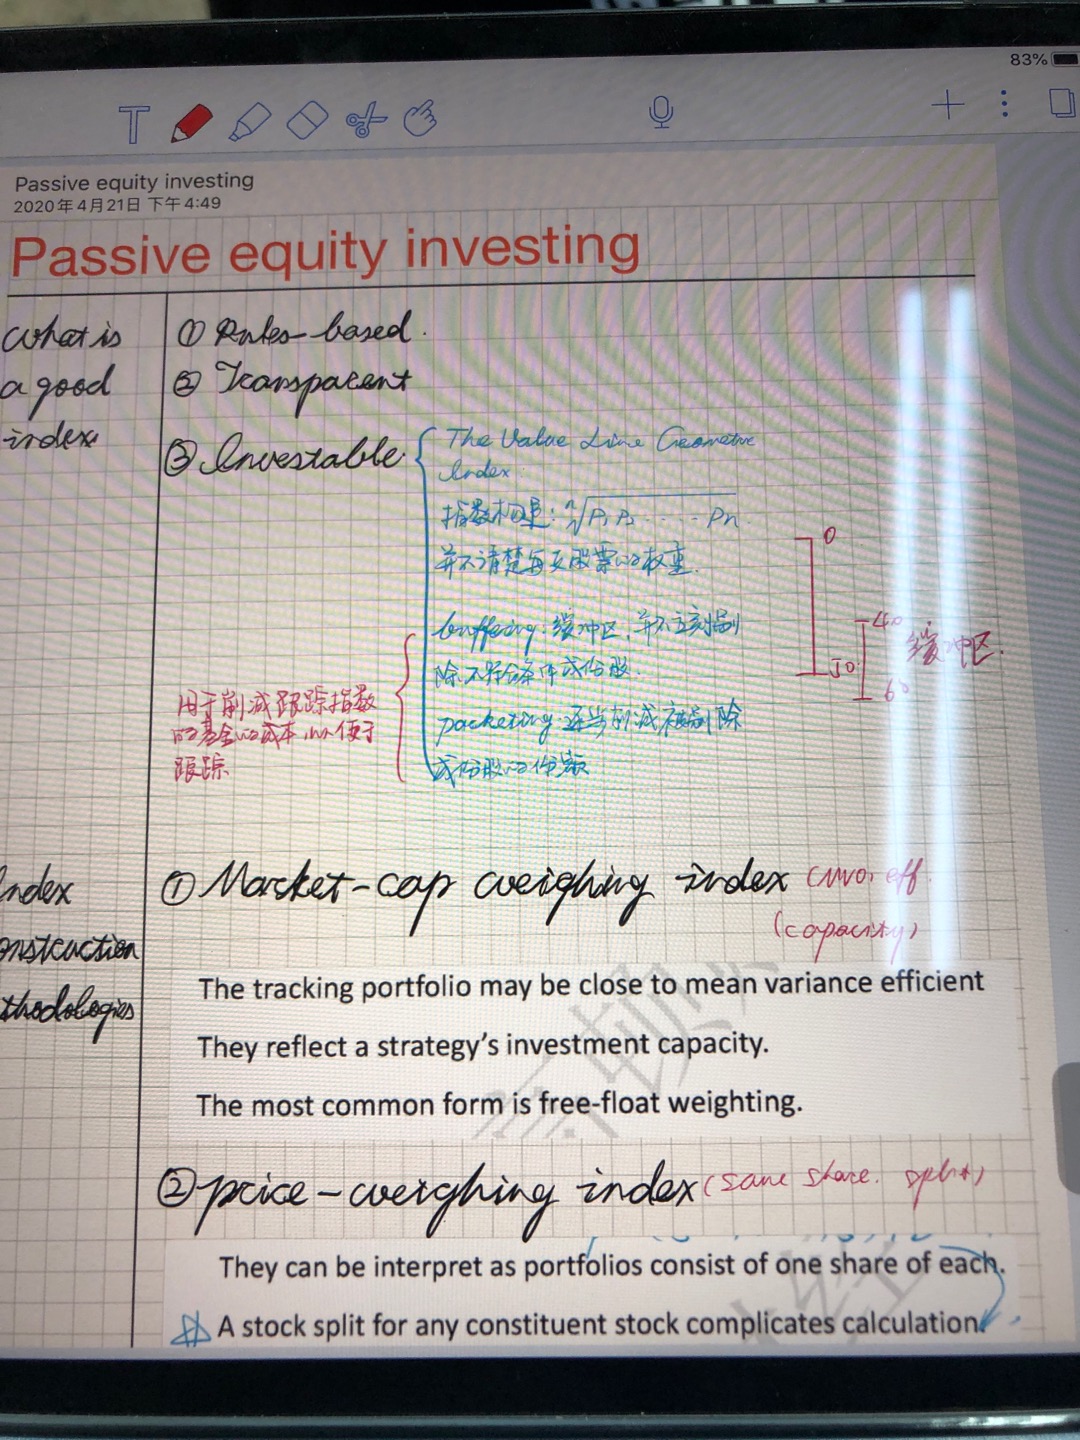 83%
Passive equity investing
2020年4月21日 下午4:49
Passive equity investing
What is
a good
index
① Rules-based.
② Transparent
③ Investable
The Value Line Geometric
Index
指数构建: ⁿ√P₁P₂.....Pn
并不清楚每支股票的权重.
buffering: 缓冲区, 并不立刻剔
除不符合条件成份股.
packeting: 逐步削减被剔除
成份股的份额
用于削减跟踪指数
的基金的成本, 以便于
跟踪
0
50
40
60
缓冲区.
Index
onstruction
thodologies
① Market-cap weighing index (MVO. eff.
(capacity)
The tracking portfolio may be close to mean variance efficient
They reflect a strategy's investment capacity.
The most common form is free-float weighting.
② price-weighing index (same share. split)
They can be interpret as portfolios consist of one share of each.
A stock split for any constituent stock complicates calculation.